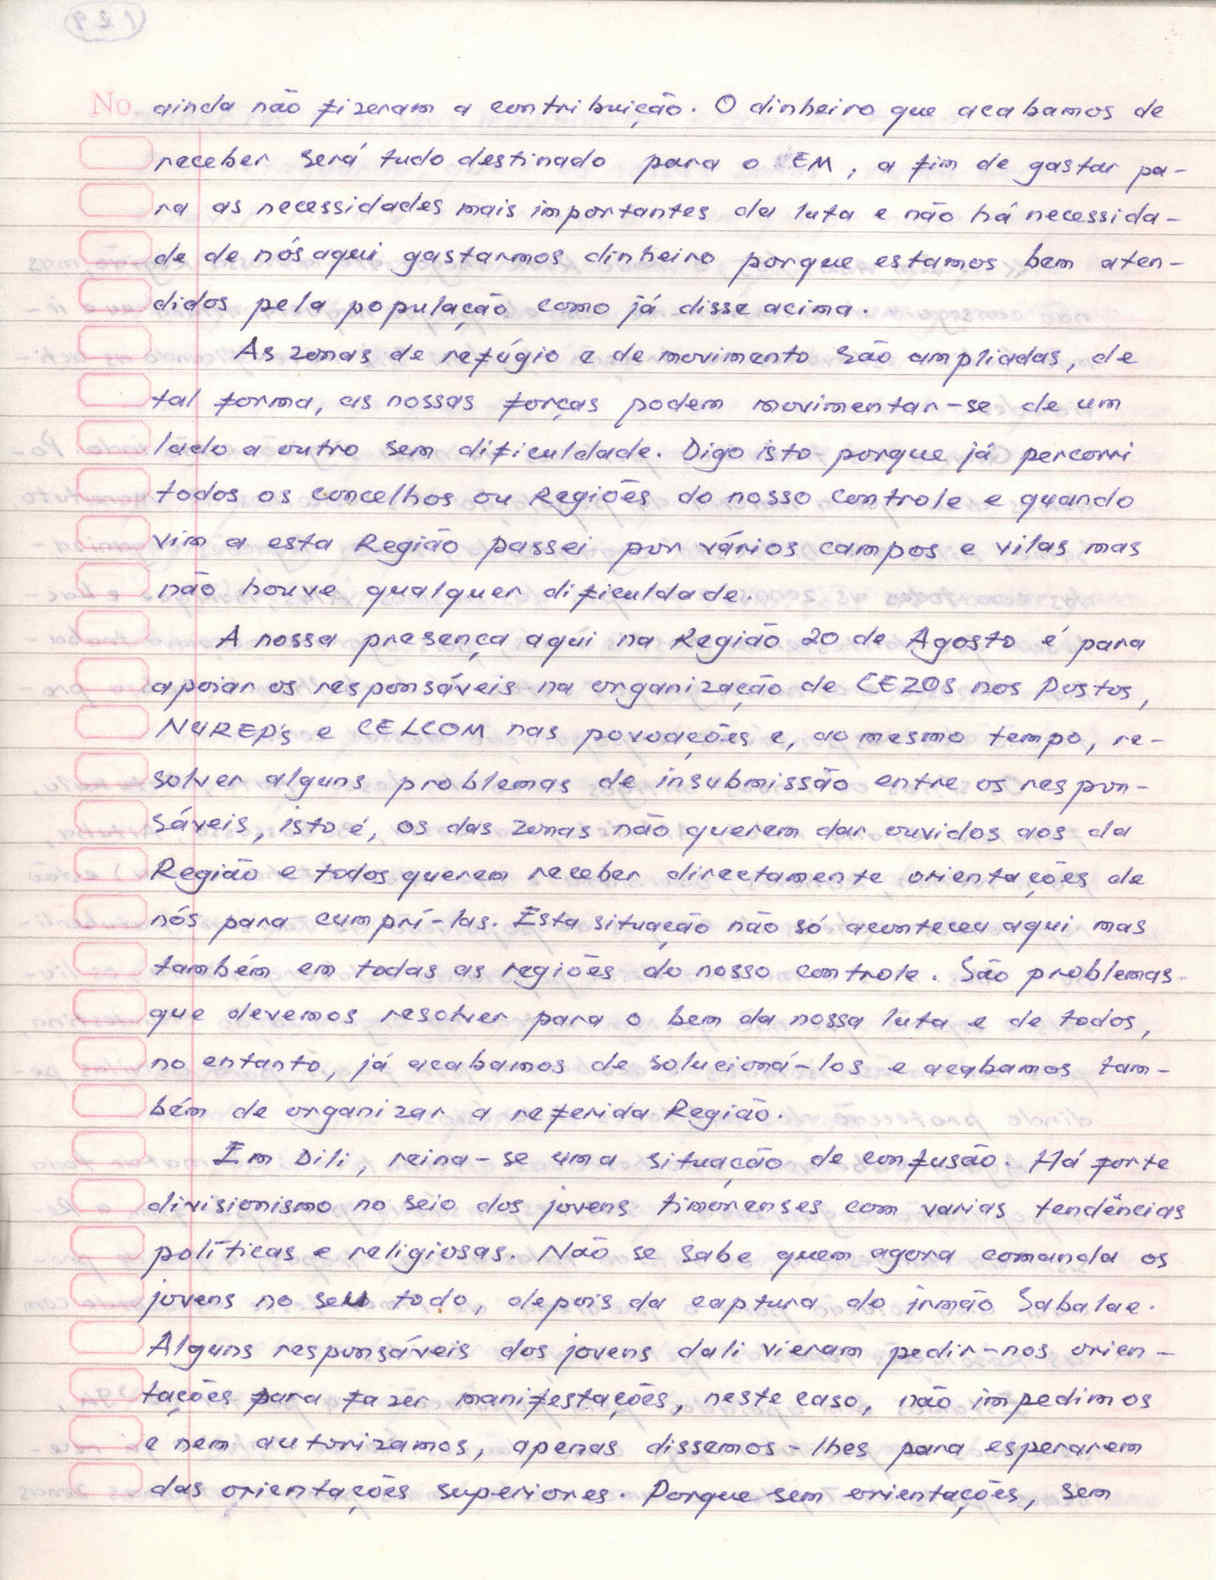 (129)
No. ainda não fizeram a contribuição. O dinheiro que acabamos de
receber será tudo destinado para o EM, a fim de gastar pa-
ra as necessidades mais importantes da luta e não há necessida-
de de nós aqui gastarmos dinheiro porque estamos bem aten-
didos pela população como já disse acima.
As zonas de refúgio e de movimento são ampliadas, de
tal forma, as nossas forças podem movimentar-se de um
lado a outro sem dificuldade. Digo isto porque já percorri
todos os concelhos ou Regiões do nosso controle e quando
vim a esta Região passei por vários campos e vilas mas
não houve qualquer dificuldade.
A nossa presença aqui na Região 20 de Agosto é para
apoiar os responsáveis na organização de CEZOS nos Postos,
NUREP's e CELCOM nas povoações e, ao mesmo tempo, re-
solver alguns problemas de insubmissão entre os respon-
sáveis, isto é, os das zonas não querem dar ouvidos aos da
Região e todos querem receber directamente orientações de
nós para cumprí-las. Esta situação não só aconteceu aqui mas
também em todas as regiões do nosso controle. São problemas
que devemos resolver para o bem da nossa luta e de todos,
no entanto, já acabamos de solucioná-los e acabamos tam-
bém de organizar a referida Região.
Em Dili, reina-se uma situação de confusão. Há forte
divisionismo no seio dos jovens timorenses com varias tendências
políticas e religiosas. Não se sabe quem agora comanda os
jovens no seu todo, depois da captura do irmão Sabalae.
Alguns responsáveis dos jovens dali vieram pedir-nos orien-
tações para fazer manifestações, neste caso, não impedimos
e nem autorizamos, apenas dissemos-lhes para esperarem
das orientações superiores. Porque sem orientações, sem